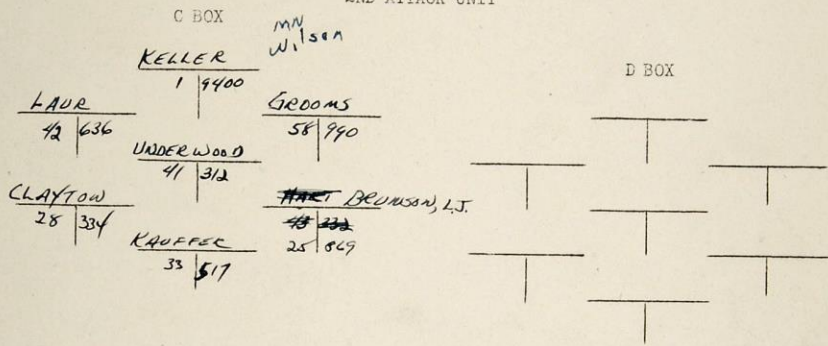 2ND ATTACK UNIT
C BOX
MN
Wilson
KELLER
1 9400
D BOX
LAUR
42 636
GROOMS
58 990
UNDERWOOD
41 312
CLAYTON
28 334
HART BRUNSON, L.J.
43 332
25 869
KAUFFER
33 517